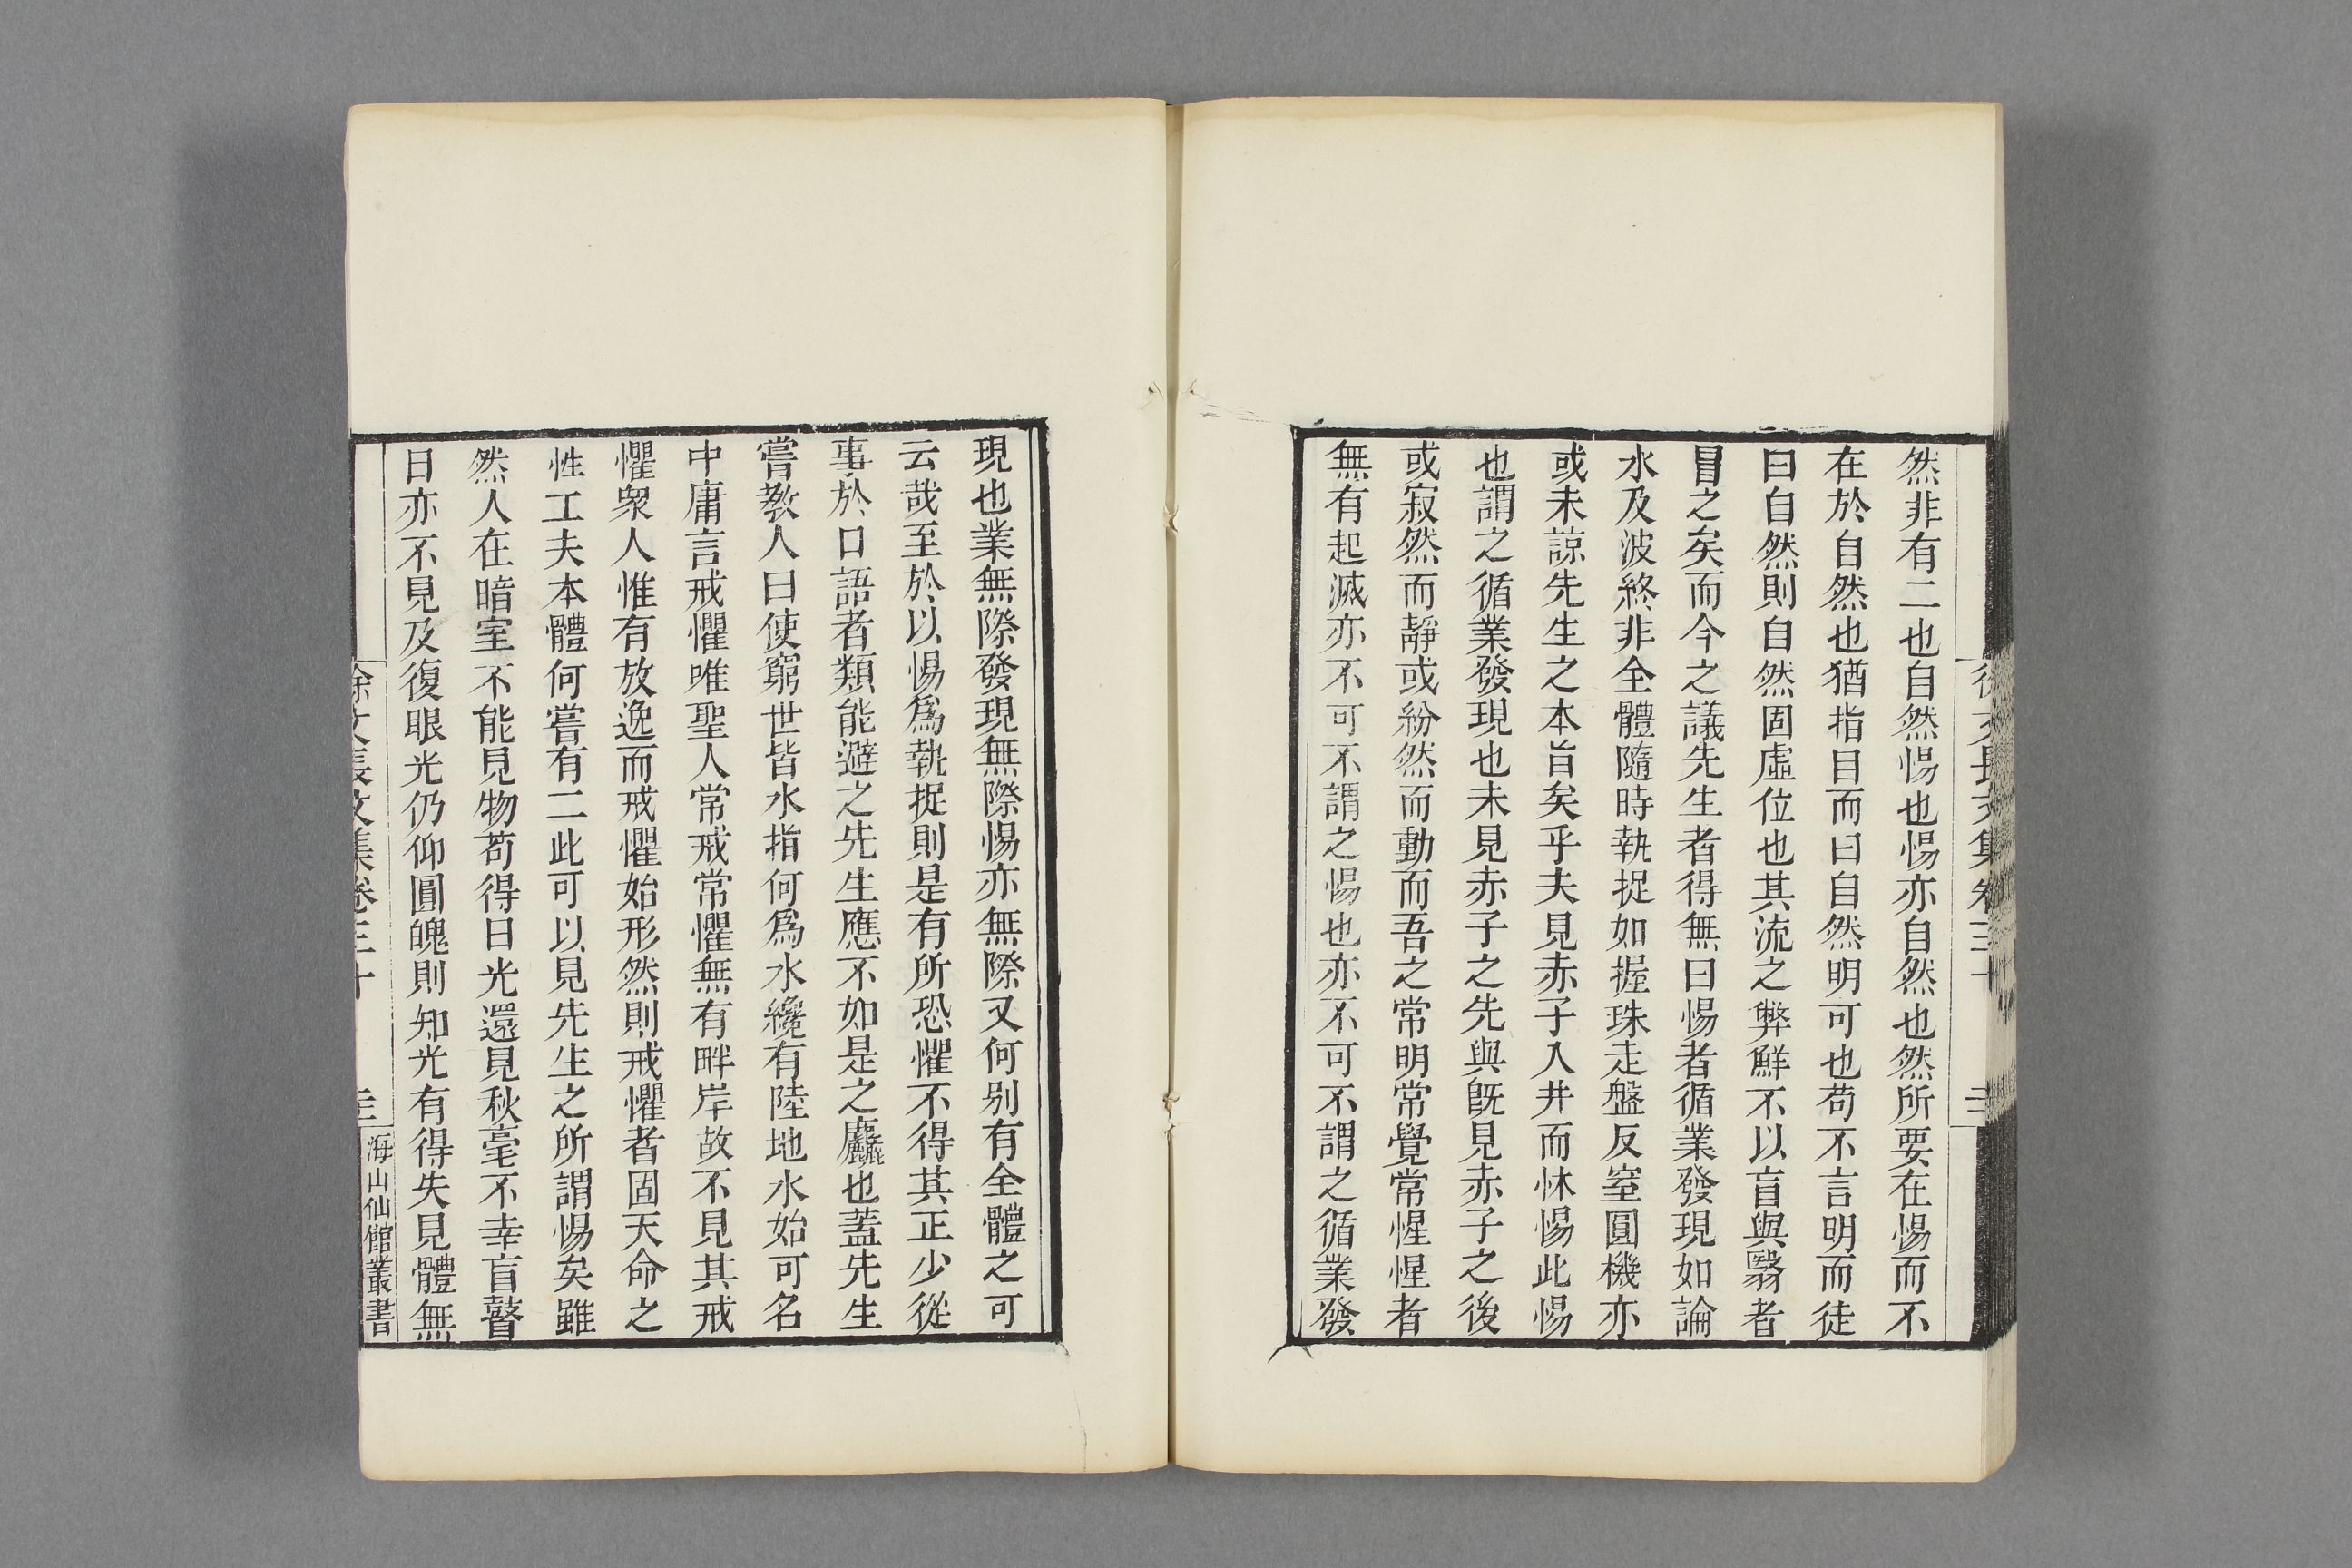 徐文長文集卷三十
二
然非有二也自然惕也惕亦自然也然所要在惕而不
在於自然也猶指目而曰自然明可也苟不言明而徒
曰自然則自然固虛位也其流之弊鮮不以盲與翳者
冒之矣而今之議先生者得無曰惕者循業發現如論
水及波終非全體隨時執捉如握珠走盤反窒圓機亦
或未諒先生之本旨矣乎夫見赤子入井而怵惕此惕
也謂之循業發現也未見赤子之先與旣見赤子之後
或寂然而靜或紛然而動而吾之常明常覺常惺惺者
無有起滅亦不可不謂之惕也亦不可不謂之循業發
現也業無際發現無際惕亦無際又何别有全體之可
云哉至於以惕爲執捉則是有所恐懼不得其正少從
事於口語者類能避之先生應不如是之麤也蓋先生
嘗教人曰使窮世皆水指何爲水纔有陸地水始可名
中庸言戒懼唯聖人常戒常懼無有畔岸故不見其戒
懼衆人惟有放逸而戒懼始形然則戒懼者固天命之
性工夫本體何嘗有二此可以見先生之所謂惕矣雖
然人在暗室不能見物苟得日光還見秋毫不幸盲瞽
日亦不見及復眼光仍仰圓魄則知光有得失見體無
徐文長文集卷三十
海山仙館叢書